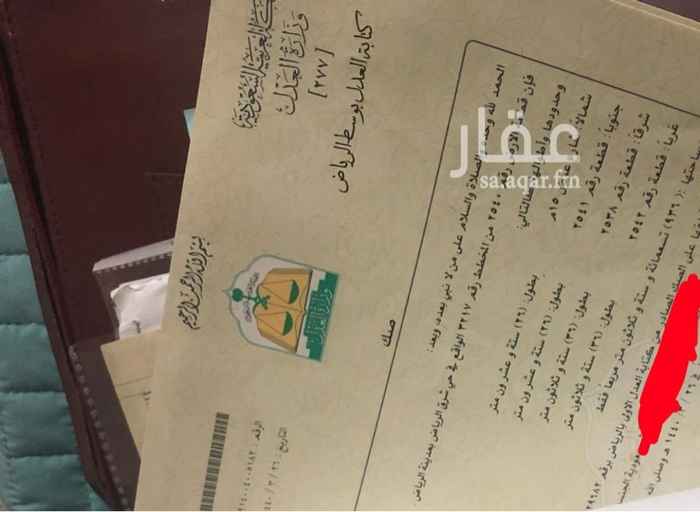 العربية السعودية
وزارة العدل
[٢٧٧]
كتابة العدل بوسط الرياض
بسم الله الرحمن الرحيم
وزارة العدل
الرقم:
التاريخ: ٢٦ / ٣ /
صك
الحمد لله وحده والصلاة والسلام على من لا نبي بعده، وبعد:
فإن قطعة الأرض رقم ٢٥٤٠ من المخطط رقم ٣٢١٧ الواقع في حي شرق الرياض بمدينة الرياض.
وحدودها وأطوالها كالتالي:
شمالاً: شارع عرض ١٥م بطول: (٢٦) ستة و عشرون متر
جنوباً: قطعة رقم ٢٥٤١ بطول: (٢٦) ستة و عشرون متر
شرقاً: قطعة رقم ٢٥٣٨ بطول: (٣٦) ستة و ثلاثون متر
غرباً: قطعة رقم ٢٥٤٢ بطول: (٣٦) ستة و ثلاثون متر
(٩٣٦) تسعمائة و ستة و ثلاثون متر مربعاً فقط
على الصك الصادر من كتابة العدل الأولى بالرياض برقم
١٤٤٠ هـ وصلى الله
عقار
sa.aqar.fm